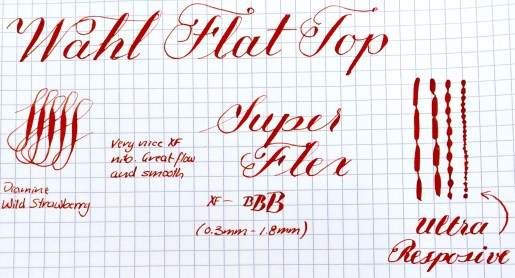 Wahl Flat Top
Diamine
Wild Strawberry
Very nice XF
nib. Great flow
and smooth
Super
Flex
XF - BBB
(0.3mm - 1.8mm)
Ultra
Resposive